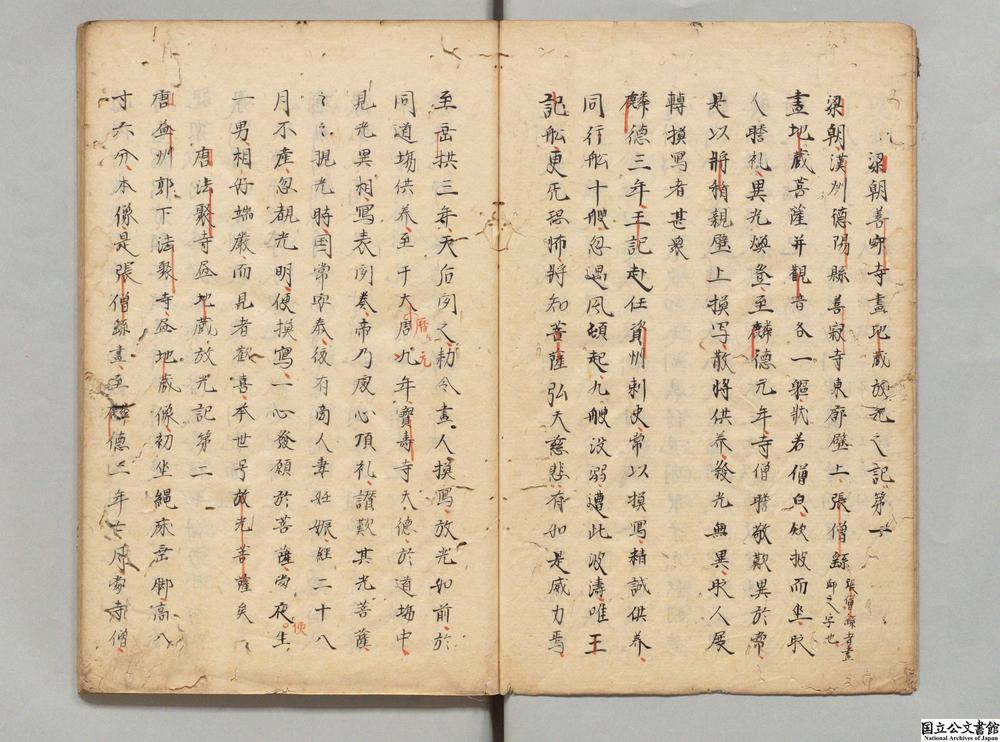 梁朝善寂寺畫地藏放光之記第一
梁朝漢州德陽縣善寂寺東廊壁上張僧繇
張僧繇者畫
師之人字也
畫地藏菩薩并觀音各一軀狀若僧皃斂披而坐时
人瞻礼異光煥發至麟德元年寺僧瞻敬歎異於常
是以將親壁上摸写散將供养發光無異时人展
轉摸寫者甚衆
麟德三年王記赴任資州刺史常以摸寫精誠供养
同行舩十艘忽遇風頓起九艘没溺遭此波濤唯王
記舩更无恐怖將知菩薩弘大慈悲有如是威力焉
至垂拱三年天后聞之勅令畫人摸寫放光如前於
同道場供养至于大周九年寶壽寺大德於道場中
曆
元
見光異相寫表聞奏帝乃虔心頂礼讃歎其光菩薩
現光時国常安泰復有商人妻妊娠經二十八
月不産忽覩光明便摸寫一心發願於菩薩當夜生
便
一男相好端嚴而見者歡喜本世号放光菩薩矣
唐法聚寺畫地藏放光記第二
唐益州郭下法聚寺畫地藏像初坐繩床垂脚高八
寸六分本像是張僧繇畫至麟德二年七月當寺僧
国立公文書館
National Archives of Japan